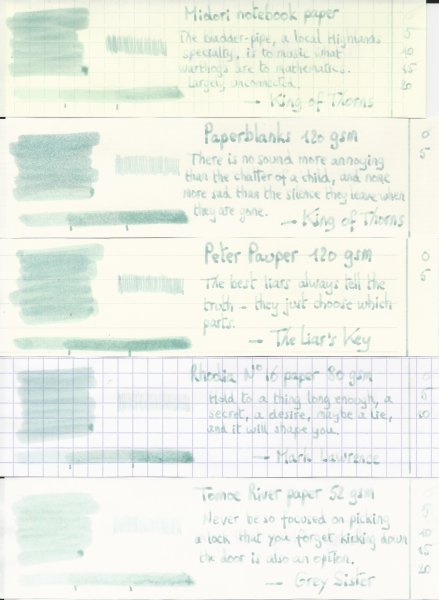 Midori notebook paper
The bladder-pipe, a local Highlands
specialty, is to music what
warthogs are to mathematics.
Largely unconnected.
→ King of Thorns
0
5
10
15
20
Paperblanks 120 gsm
There is no sound more annoying
than the chatter of a child, and none
more sad than the silence they leave when
they are gone.
→ King of Thorns
0
5
Peter Pauper 120 gsm
The best liars always tell the
truth - they just choose which
parts.
→ The Liar's Key
0
5
Rhodia N°16 paper 80 gsm
Hold to a thing long enough, a
secret, a desire, maybe a lie,
and it will shape you.
→ Mark Lawrence
0
5
10
Tomoe River paper 52 gsm
Never be so focused on picking
a lock that you forget kicking down
the door is also an option.
→ Grey Sister
0
5
10
15
20